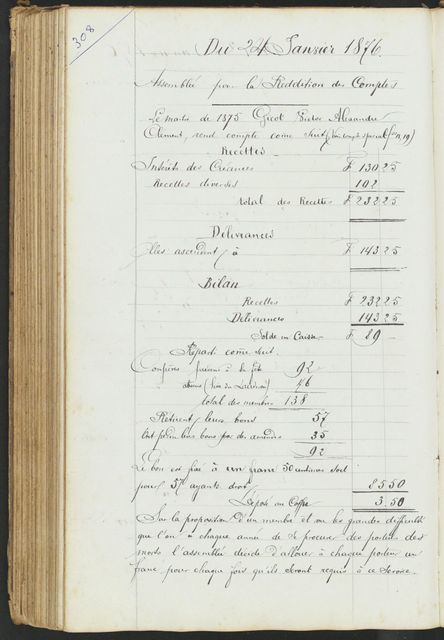 308
Du 24 Janvier 1876.
Assemblée pour la Reddition des Comptes
Le maître de 1875 Guot Victor Alexandre
Clément, rend compte come suit (
Recettes
Intérêts des Créances F 130 25
Recettes diverses 102
total des Recettes F 232 25
Délivrances
Elles ascendent à F 143 25
Bilan
Recettes F 232 25
Délivrances 143 25
Solde en Caisse F 89 -
Réparti come suit.
Confrères présens à la fête 92
absens 46
total des membres 138
Retirent leurs bons 57
Ont perdu leurs bons par des amendes 35
92
Le bon est fixé à un franc 50 centimes soit
pour 57 ayants droit 85 50
Déposé au Coffre 3.50
Sur la proposition d'un membre et vu les grandes difficultés
que l'on a chaque année de se procurer des porteurs des
morts l'assemblée décide d'allouer à chaque porteur un
franc pour chaque fois qu'ils seront requis à ce service.